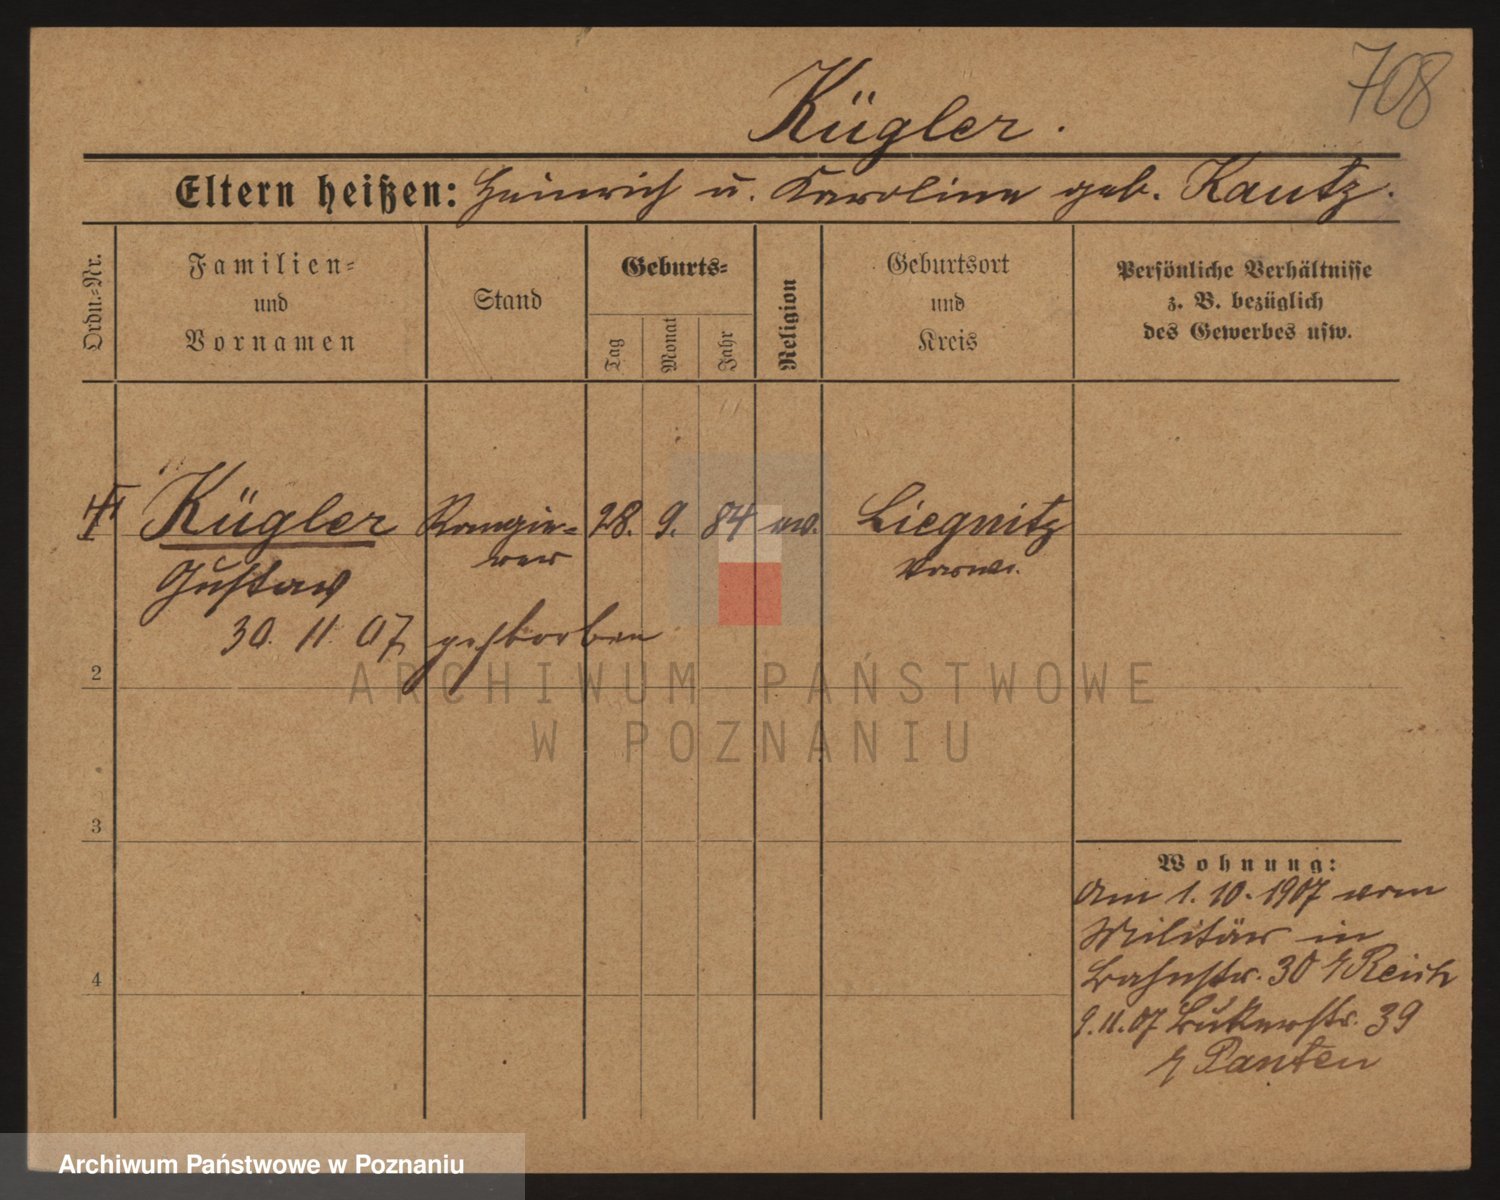 708
Kügler.
Eltern heißen: Heinrich u. Karoline geb. Kautz.
Ordn.=Nr.
Familien=
und
Vornamen
Stand
Geburts=
Tag
Monat
Jahr
Religion
Geburtsort
und
Kreis
Persönliche Verhältnisse
z. B. bezüglich
des Gewerbes usw.
Kügler Rangie= 28. 9. 84 ev. Liegnitz
rer
Gustav
30. 11. 07 gestorben
2
3
4
Wohnung:
Am 1. 10. 1907 vom
Militär in
Bahnstr. 30 b/ Reich
9.11.07 Bukerstr. 39
b/ Panten
ARCHIWUM PAŃSTWOWE
W POZNANIU
Archiwum Państwowe w Poznaniu